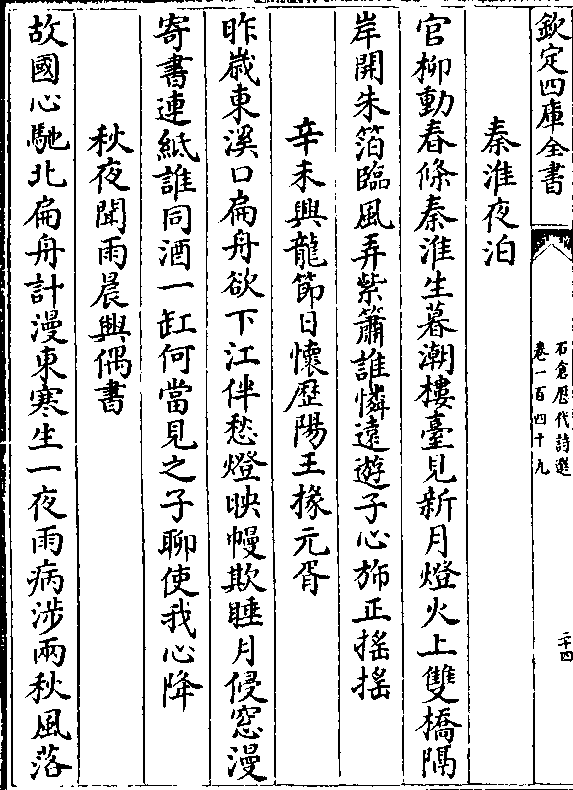 欽定四庫全書
石倉歷代詩選
卷一百四十九
二十四
秦淮夜泊
官柳動春條秦淮生暮潮樓臺見新月燈火上雙橋隔
岸開朱箔臨風弄紫簫誰憐遠遊子心斾正搖搖
辛未興龍節日懷歴陽王掾元胥
昨歳東溪口扁舟欲下江伴愁燈映幔欺睡月侵窓漫
寄書連紙誰同酒一缸何當見之子聊使我心降
秋夜聞雨晨興偶書
故國心馳北扁舟計漫東寒生一夜雨病涉兩秋風落